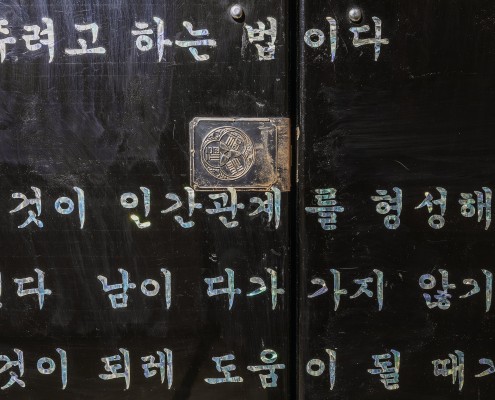 려고 하는 법이다
것이 인간관계를 형성해
다 남이 다가가지 않기
것이 되레 도움이 될 때가